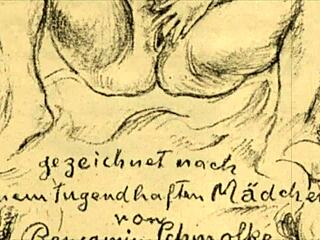 gezeichnet nach
nem tugendhaften Mädche
von
Benjamin Schinolke